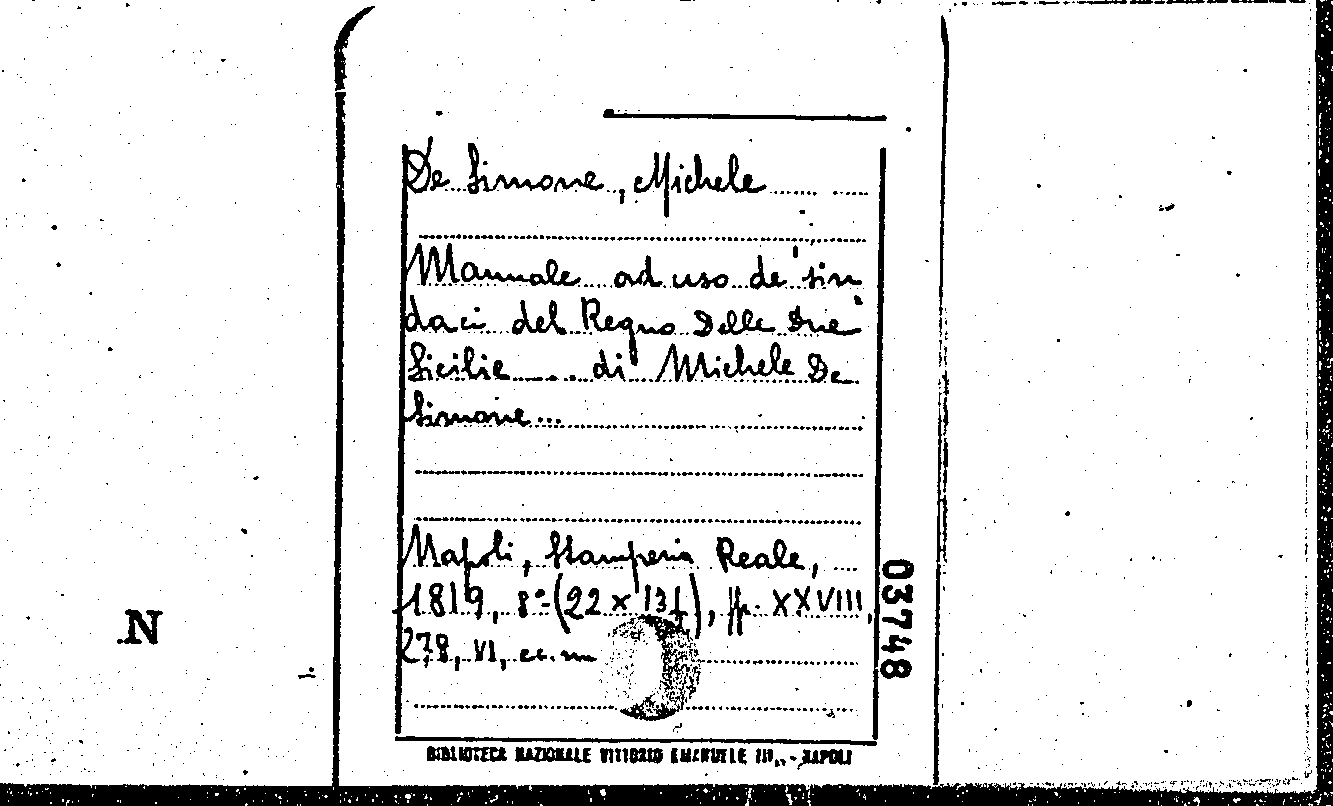 De Simone, Michele
Manuale ad uso de' sin
daci del Regno delle due
Sicilie ... di Michele De
Simone ...
Napoli, Stamperia Reale,
1819, 8°-(22 x 13 ½), pp. XXVIII,
278, VI, cc.
03748
N
BIBLIOTECA NAZIONALE VITTORIO EMANUELE III, - NAPOLI